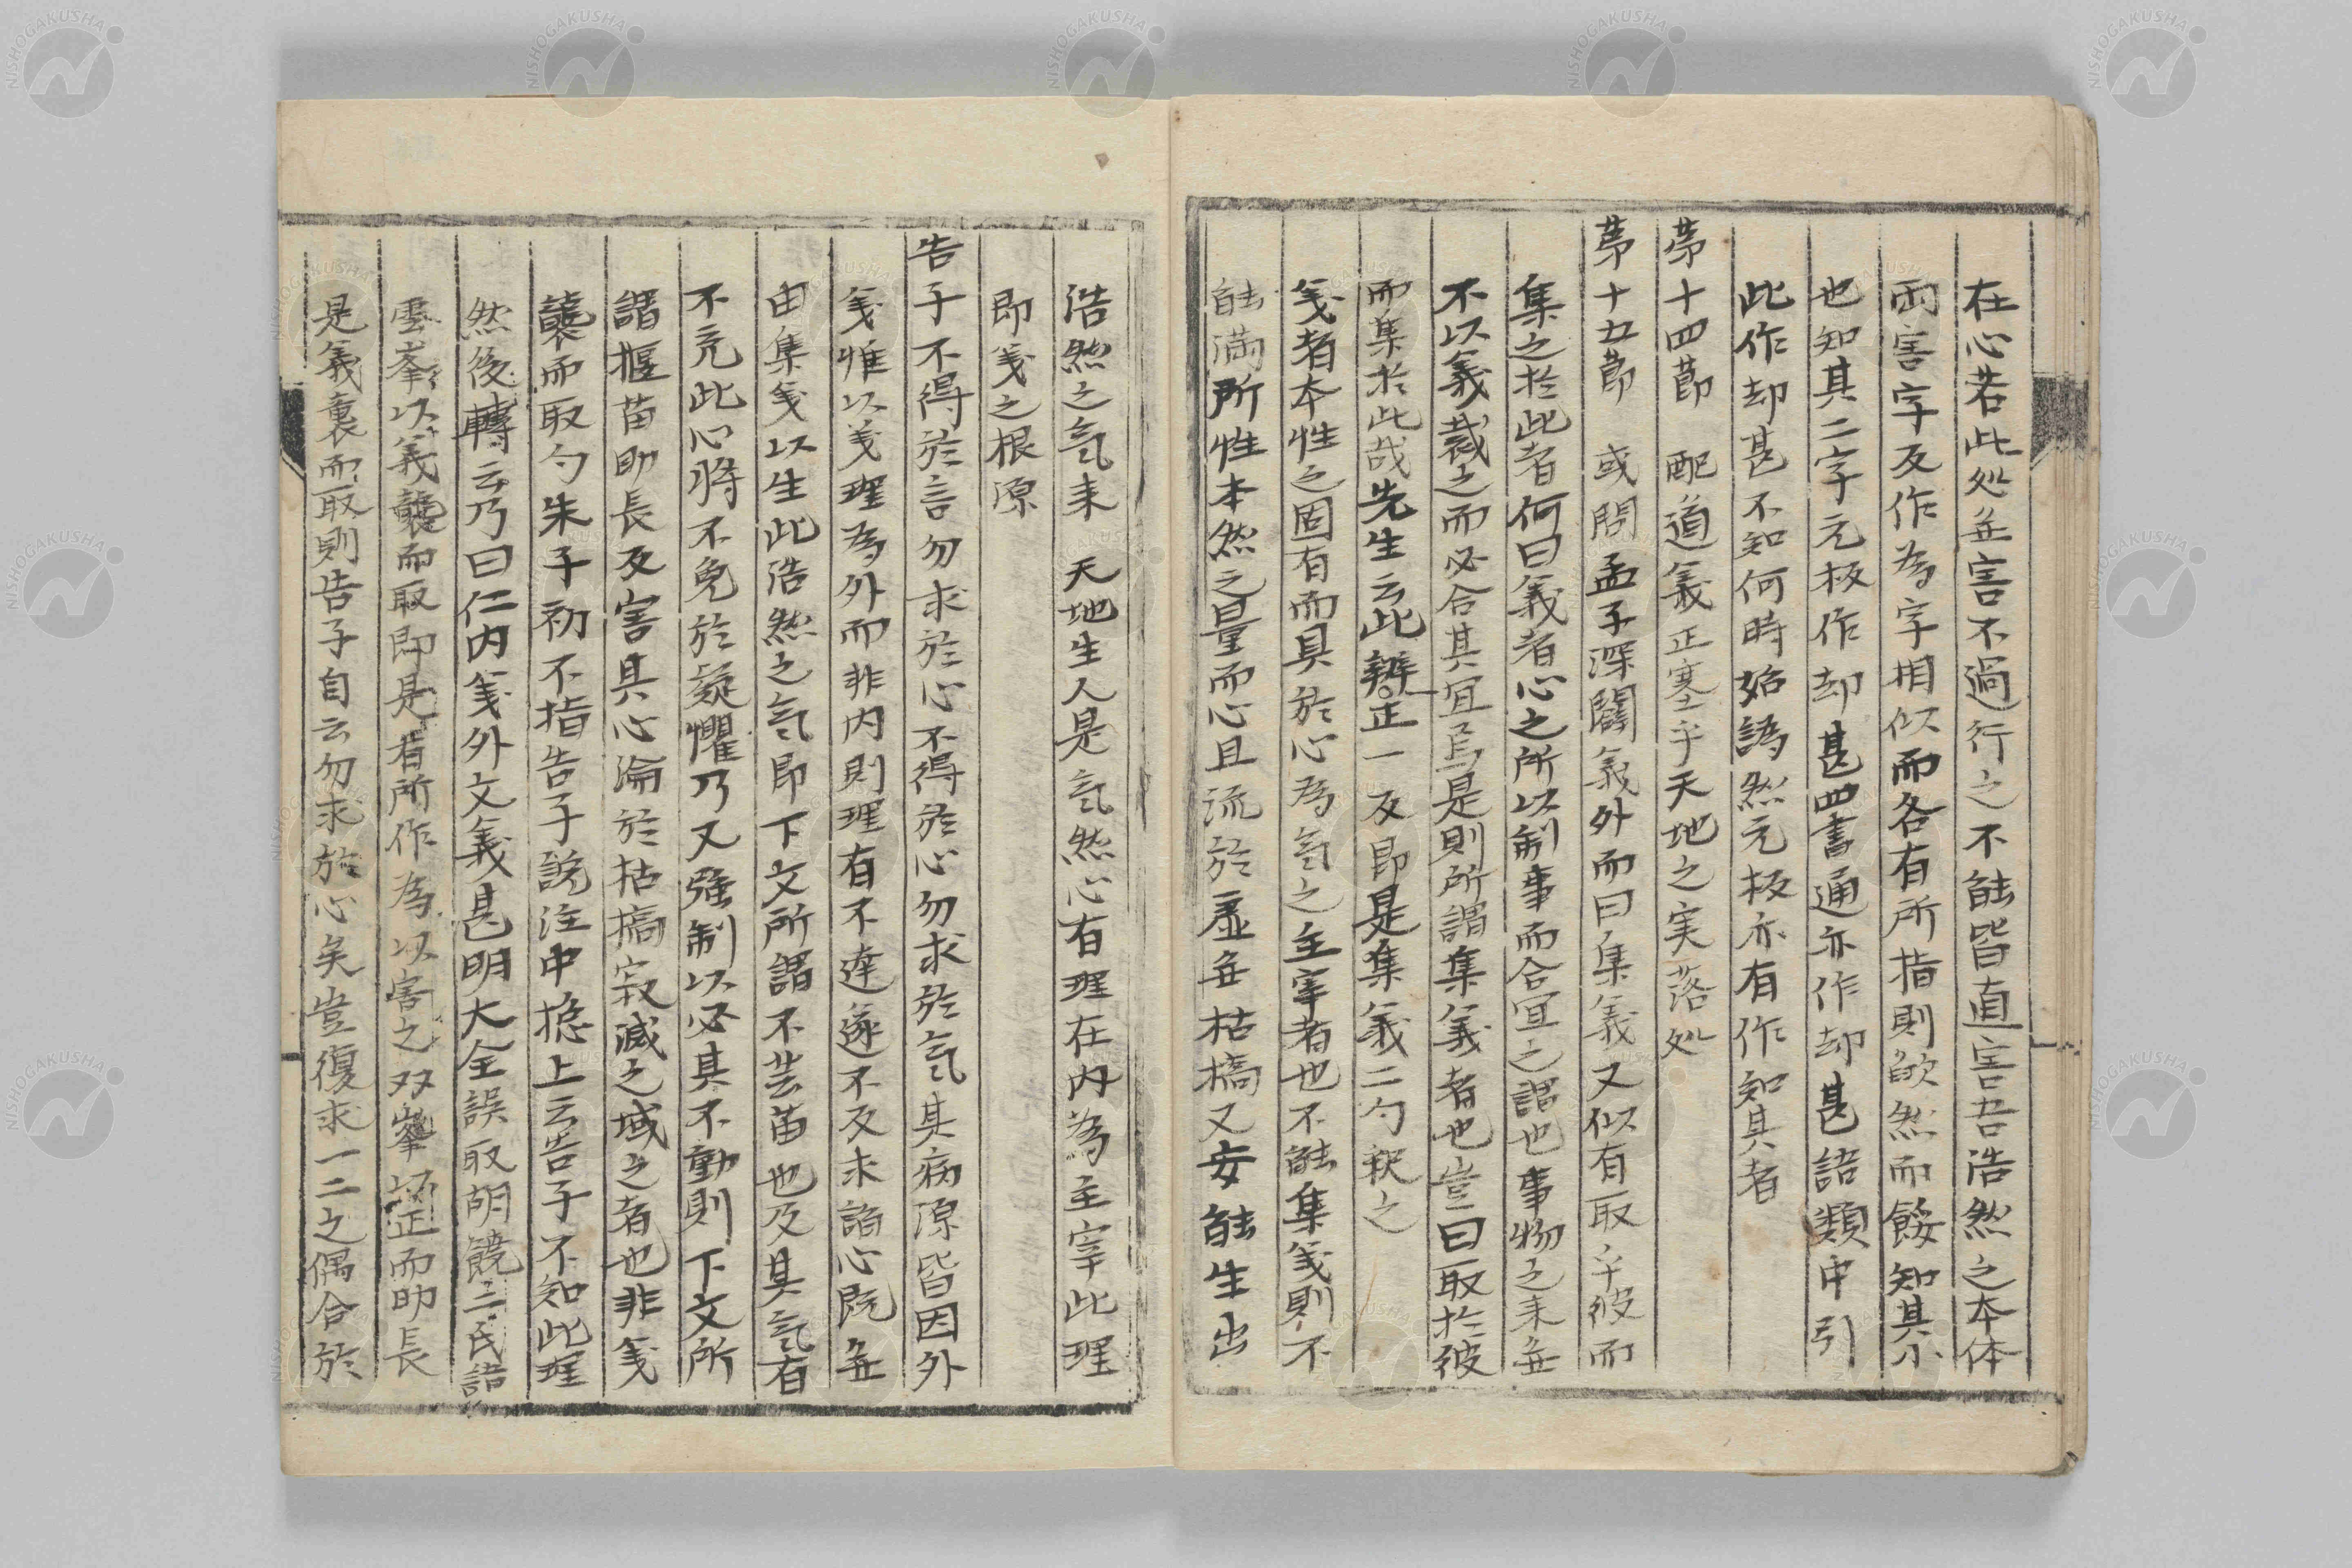 在心若此処無害不過行之不能皆直害吾浩然之本体
両害字反作為字相似而各有所指則欿然而餒知其小
也知其二字元板作却甚四書通亦作却甚語類中引
此作却甚不知何時始譌然元板亦有作知其者
第十四節 配道義正塞乎天地之実落処
第十五節 或問孟子深闢義外而曰集義又似有取乎彼而
集之於此者何曰義者心之所以制事而合宜之謂也事物之来無
不以義裁之而必合其宜焉是則所謂集義者也豈曰取於彼
而集於此哉先生云此辨正一反即是集義二勺釈之
义者本性之固有而具於心為气之主宰者也不能集义則不
能満所性本然之量而心且流於虚無枯槁又安能生出
浩然之气来 天地生人是气然心有理在内為主宰此理
即义之根源
告子不得於言勿求於心不得於心勿求於气其病源皆因外
义惟以义理為外而非内則理有不達遂不反求諸心既無
由集义以生此浩然之气即下文所謂不芸苗也及其气有
不充此心将不免於疑懼乃又強制以必其不動則下文所
謂揠苗助長反害其心淪於枯槁寂滅之域之者也非义
襲而取勺朱子初不指告子説注中捴上云告子不知此理
然後轉云乃曰仁内义外文義甚明大全誤取胡饒二氏語
雲峯以義襲而取即是有所作為以害之双峯以正而助長
是義裏而取則告子自云勿求於心矣豈復求一二之偶合於
NISHOGAKUSHA